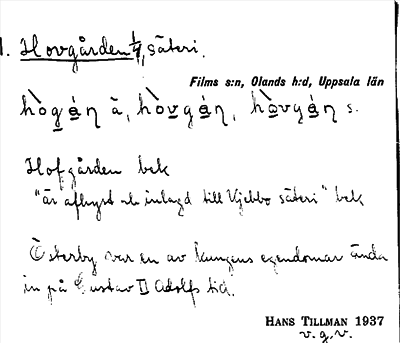 1. Hovgården 1/4, säteri.
Films s:n, Olands h:d, Uppsala län
hògá̱ŋ ä, hòv̱gá̱ŋ, hò̱vgá̱ŋ s.
Hofgården bek
"är afhyst o. inlagd till Vjebbo säteri" bek
Österby var en av kungens egendomar ända
in på Gustav II Adolfs tid.
HANS TILLMAN 1937
v.g.v.